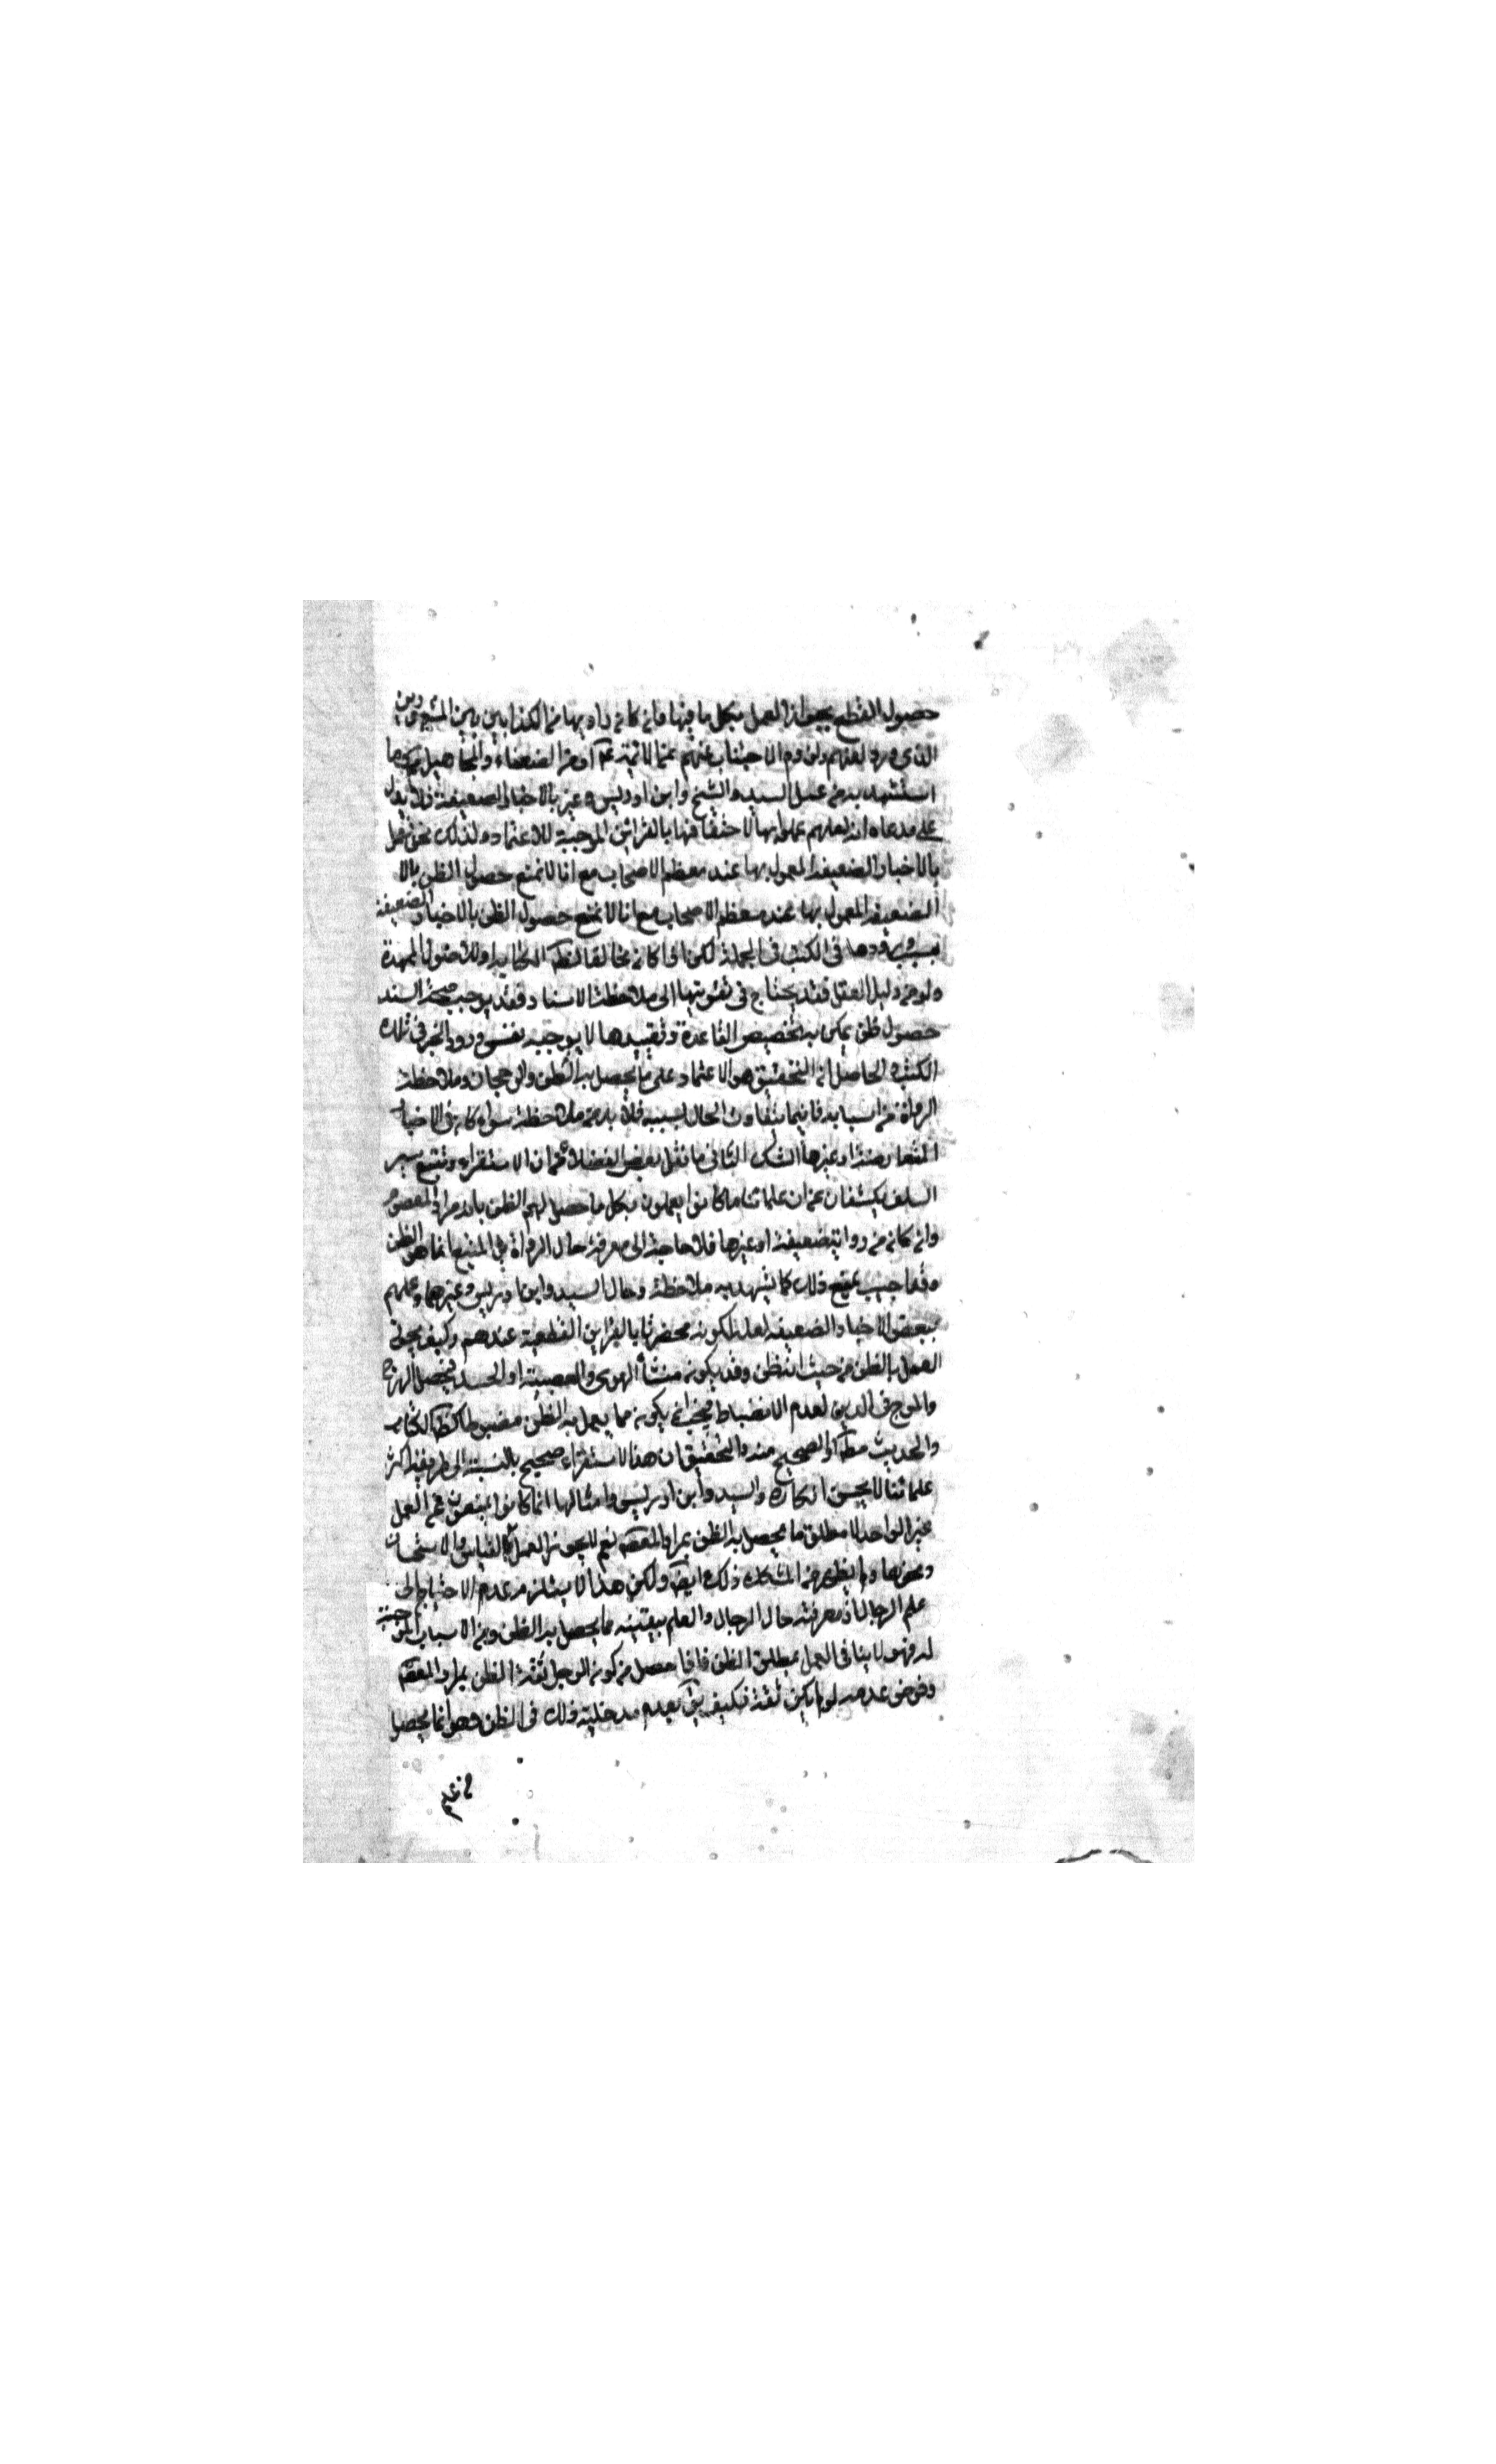 حصول القطع بجواز العمل بكل ما فيها وان كان راويها من الكذابين بين المشهورين
الذي ورد لعنهم ولزوم الاجتناب عنهم عن الائمة ع او من الضعفاء والمجاهيل وما
استشهد به من عمل السيد والشيخ وابن ادريس وغير بالاخبار الضعيفة فلا يدل
على مدعاه اذ لعلهم عملوا بها لاحتفافها بالقرائن الموجبة للاعتماد ولذلك نحن نعمل
بالاخبار الضعيفة المعمول بها عند معظم الاصحاب مع انا لا نمنع حصول الظن بالا
الضعيفة المعمول بها عند معظم الاصحاب مع انا لا نمنع حصول الظن بالاخبار الضعيفة
بسبب وجودها في الكتب في الجملة لكن اذا كان مخالفا لظ الكتاب او للاصول الممهدة
ولو من دليل العقل فقد يحتاج في تقويتها الى ملاحظة الاسناد فقد يوجب صحة السند
حصول ظن يمكن به تخصيص القاعدة وتقييدها لا يوجبه نفس ورود الخبر في تلك
الكتب والحاصل ان التحقيق هو الاعتماد على ما يحصل به الظن والرجحان وملاحظة
الرواة من اسبابه فانما يتفاوت الحال بسببه فلا بد من ملاحظته سواء كان في الاخبار
المتعارضة او غيرها الشك الثاني ما نقل بعض الفضلاء من ان الاستقراء وتتبع سير
السلف يكشفان عن ان علمائنا ما كانوا يعملون بكل ما حصل لهم الظن بانه مراد المعصوم
وان كان من رواية ضعيفة او غيرها فلا حاجة الى معرفة حال الرواة بل المتبع انما هو الظن
وقد اجيب بمنع ذلك كما يشهد به ملاحظة وحال السيد وابن ادريس وغيرهما وعملهم
ببعض الاخبار الضعيفة لعله لكونه محفوفا بالقراين القطعية عندهم وكيف يجوز
العمل بالظن من حيث انه ظن وقد يكون منشأ الهوى والعصبية او الحسد فيحصل الهرج
والمرج في الدين لعدم الانضباط فيجب ان يكون مما يعمل به الظن مضبوطا كظ الكتاب
والحديث مط او الصحيح منه والتحقيق ان هذا الاستقراء صحيح بالنسبة الى طريقة اكثر
علمائنا لا يحسن انكاره والسيد وابن ادريس وامثالهما انما كانوا يمنعون عن العمل
بخبر الواحد لا مطلق ما يحصل به الظن بمراد المعص نعم لا يجوز العمل بالقياس والاستحسان
ونحوهما ولم يظهر من المشكك ذلك ايض ولكن هذا لا يستلزم عدم الاحتياج الى
علم الرجال اذ معرفة حال الرجال والعلم بيقينه مما يحصل به الظن ومن الاسباب الموجبة
له فهو لا ينافي العمل بمطلق الظن فاذا حصل من كون الرجل ثقة الظن بمراد المعص
وفرض عدمه لو لم يكن ثقة فكيف يق بعدم مدخلية ذلك في الظن وهو انما يحصل